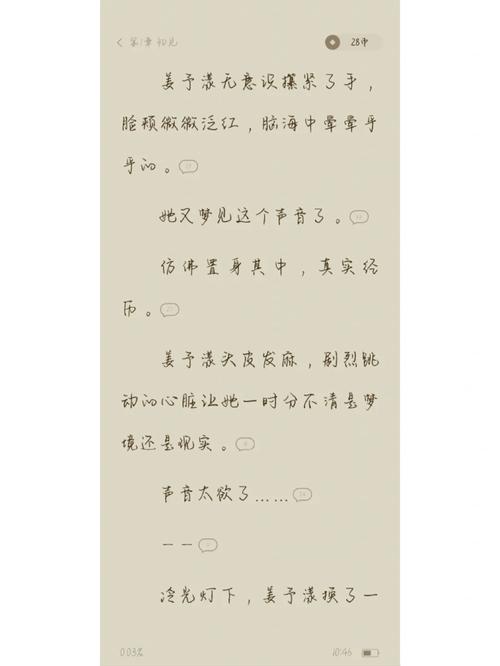 < 第1章 初见
28币
姜予漾无意识攥紧了手，
脸颊微微泛红，脑海中晕晕乎
乎的。
她又梦见这个声音了。
仿佛置身其中，真实经
历。
姜予漾头皮发麻，剧烈跳
动的心脏让她一时分不清是梦
境还是现实。
声音太欲了……
——
冷光灯下，姜予漾换了一
0.03%
10:46